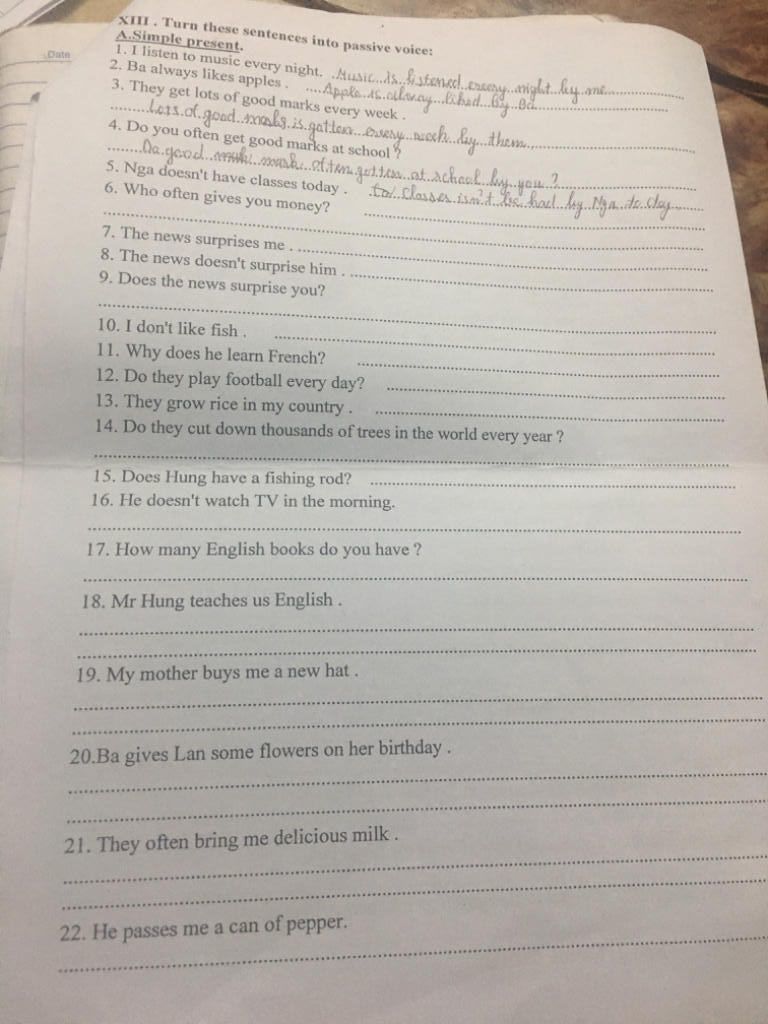 Date
XIII . Turn these sentences into passive voice:
A.Simple present.
1. I listen to music every night. Music is listened every night by me
2. Ba always likes apples . Apple is alway liked by Ba
3. They get lots of good marks every week .
Lots of good marks is gotten every week by them
4. Do you often get good marks at school ?
Do good mark often gotten at school by you ?
5. Nga doesn't have classes today . Classes isn't be had by Nga to day
6. Who often gives you money?
7. The news surprises me .
8. The news doesn't surprise him .
9. Does the news surprise you?
10. I don't like fish .
11. Why does he learn French?
12. Do they play football every day?
13. They grow rice in my country .
14. Do they cut down thousands of trees in the world every year ?
15. Does Hung have a fishing rod?
16. He doesn't watch TV in the morning.
17. How many English books do you have ?
18. Mr Hung teaches us English .
19. My mother buys me a new hat .
20.Ba gives Lan some flowers on her birthday .
21. They often bring me delicious milk .
22. He passes me a can of pepper.